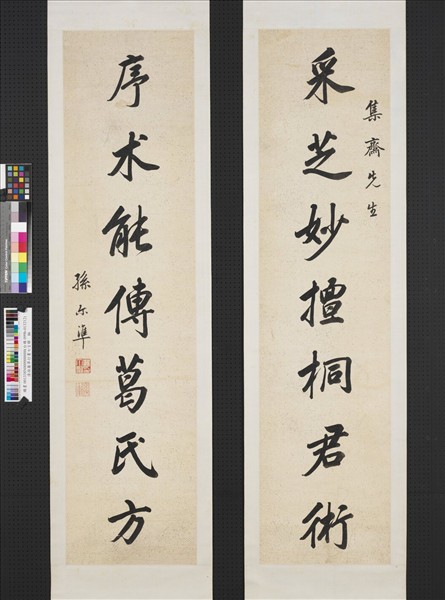 采芝妙擅桐君術
集齋先生
序术能傳葛氏方
孫尔準